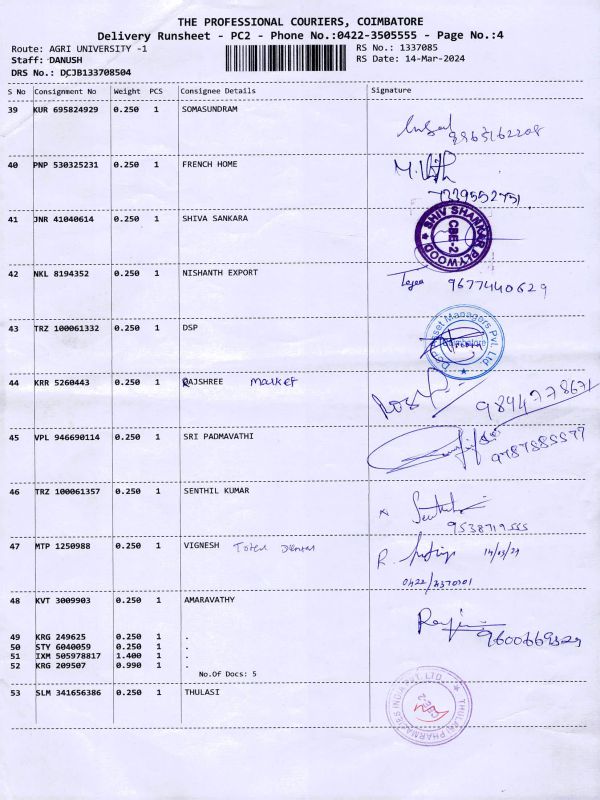 THE PROFESSIONAL COURIERS, COIMBATORE
Delivery Runsheet - PC2 - Phone No.:0422-3505555 - Page No.:4
Route: AGRI UNIVERSITY -1
RS No.: 1337085
Staff: DANUSH
RS Date: 14-Mar-2024
DRS No.: DCJB133708504
S No Consignment No Weight PCS Consignee Details Signature
39 KUR 695824929 0.250 1 SOMASUNDRAM
40 PNP 530325231 0.250 1 FRENCH HOME
7339552751
41 JNR 41040614 0.250 1 SHIVA SANKARA
SHIV SHANKAR PLYWOOD ★ CBE-2
42 NKL 8194352 0.250 1 NISHANTH EXPORT
9677440629
43 TRZ 100061332 0.250 1 DSP
DSP Asset Managers Pvt. Ltd ★ Coimbatore
44 KRR 5260443 0.250 1 RAJSHREE Market
9894778671
45 VPL 946690114 0.250 1 SRI PADMAVATHI
46 TRZ 100061357 0.250 1 SENTHIL KUMAR
9538719555
47 MTP 1250988 0.250 1 VIGNESH Total Dental
0422/4370101
48 KVT 3009903 0.250 1 AMARAVATHY
9600669329
49 KRG 249625 0.250 1 .
50 STY 6040059 0.250 1 .
51 IXM 505978817 1.400 1 .
52 KRG 209507 0.990 1 .
No.Of Docs: 5
53 SLM 341656386 0.250 1 THULASI
THULASI PHARMACIES INDIA PVT. LTD. ★